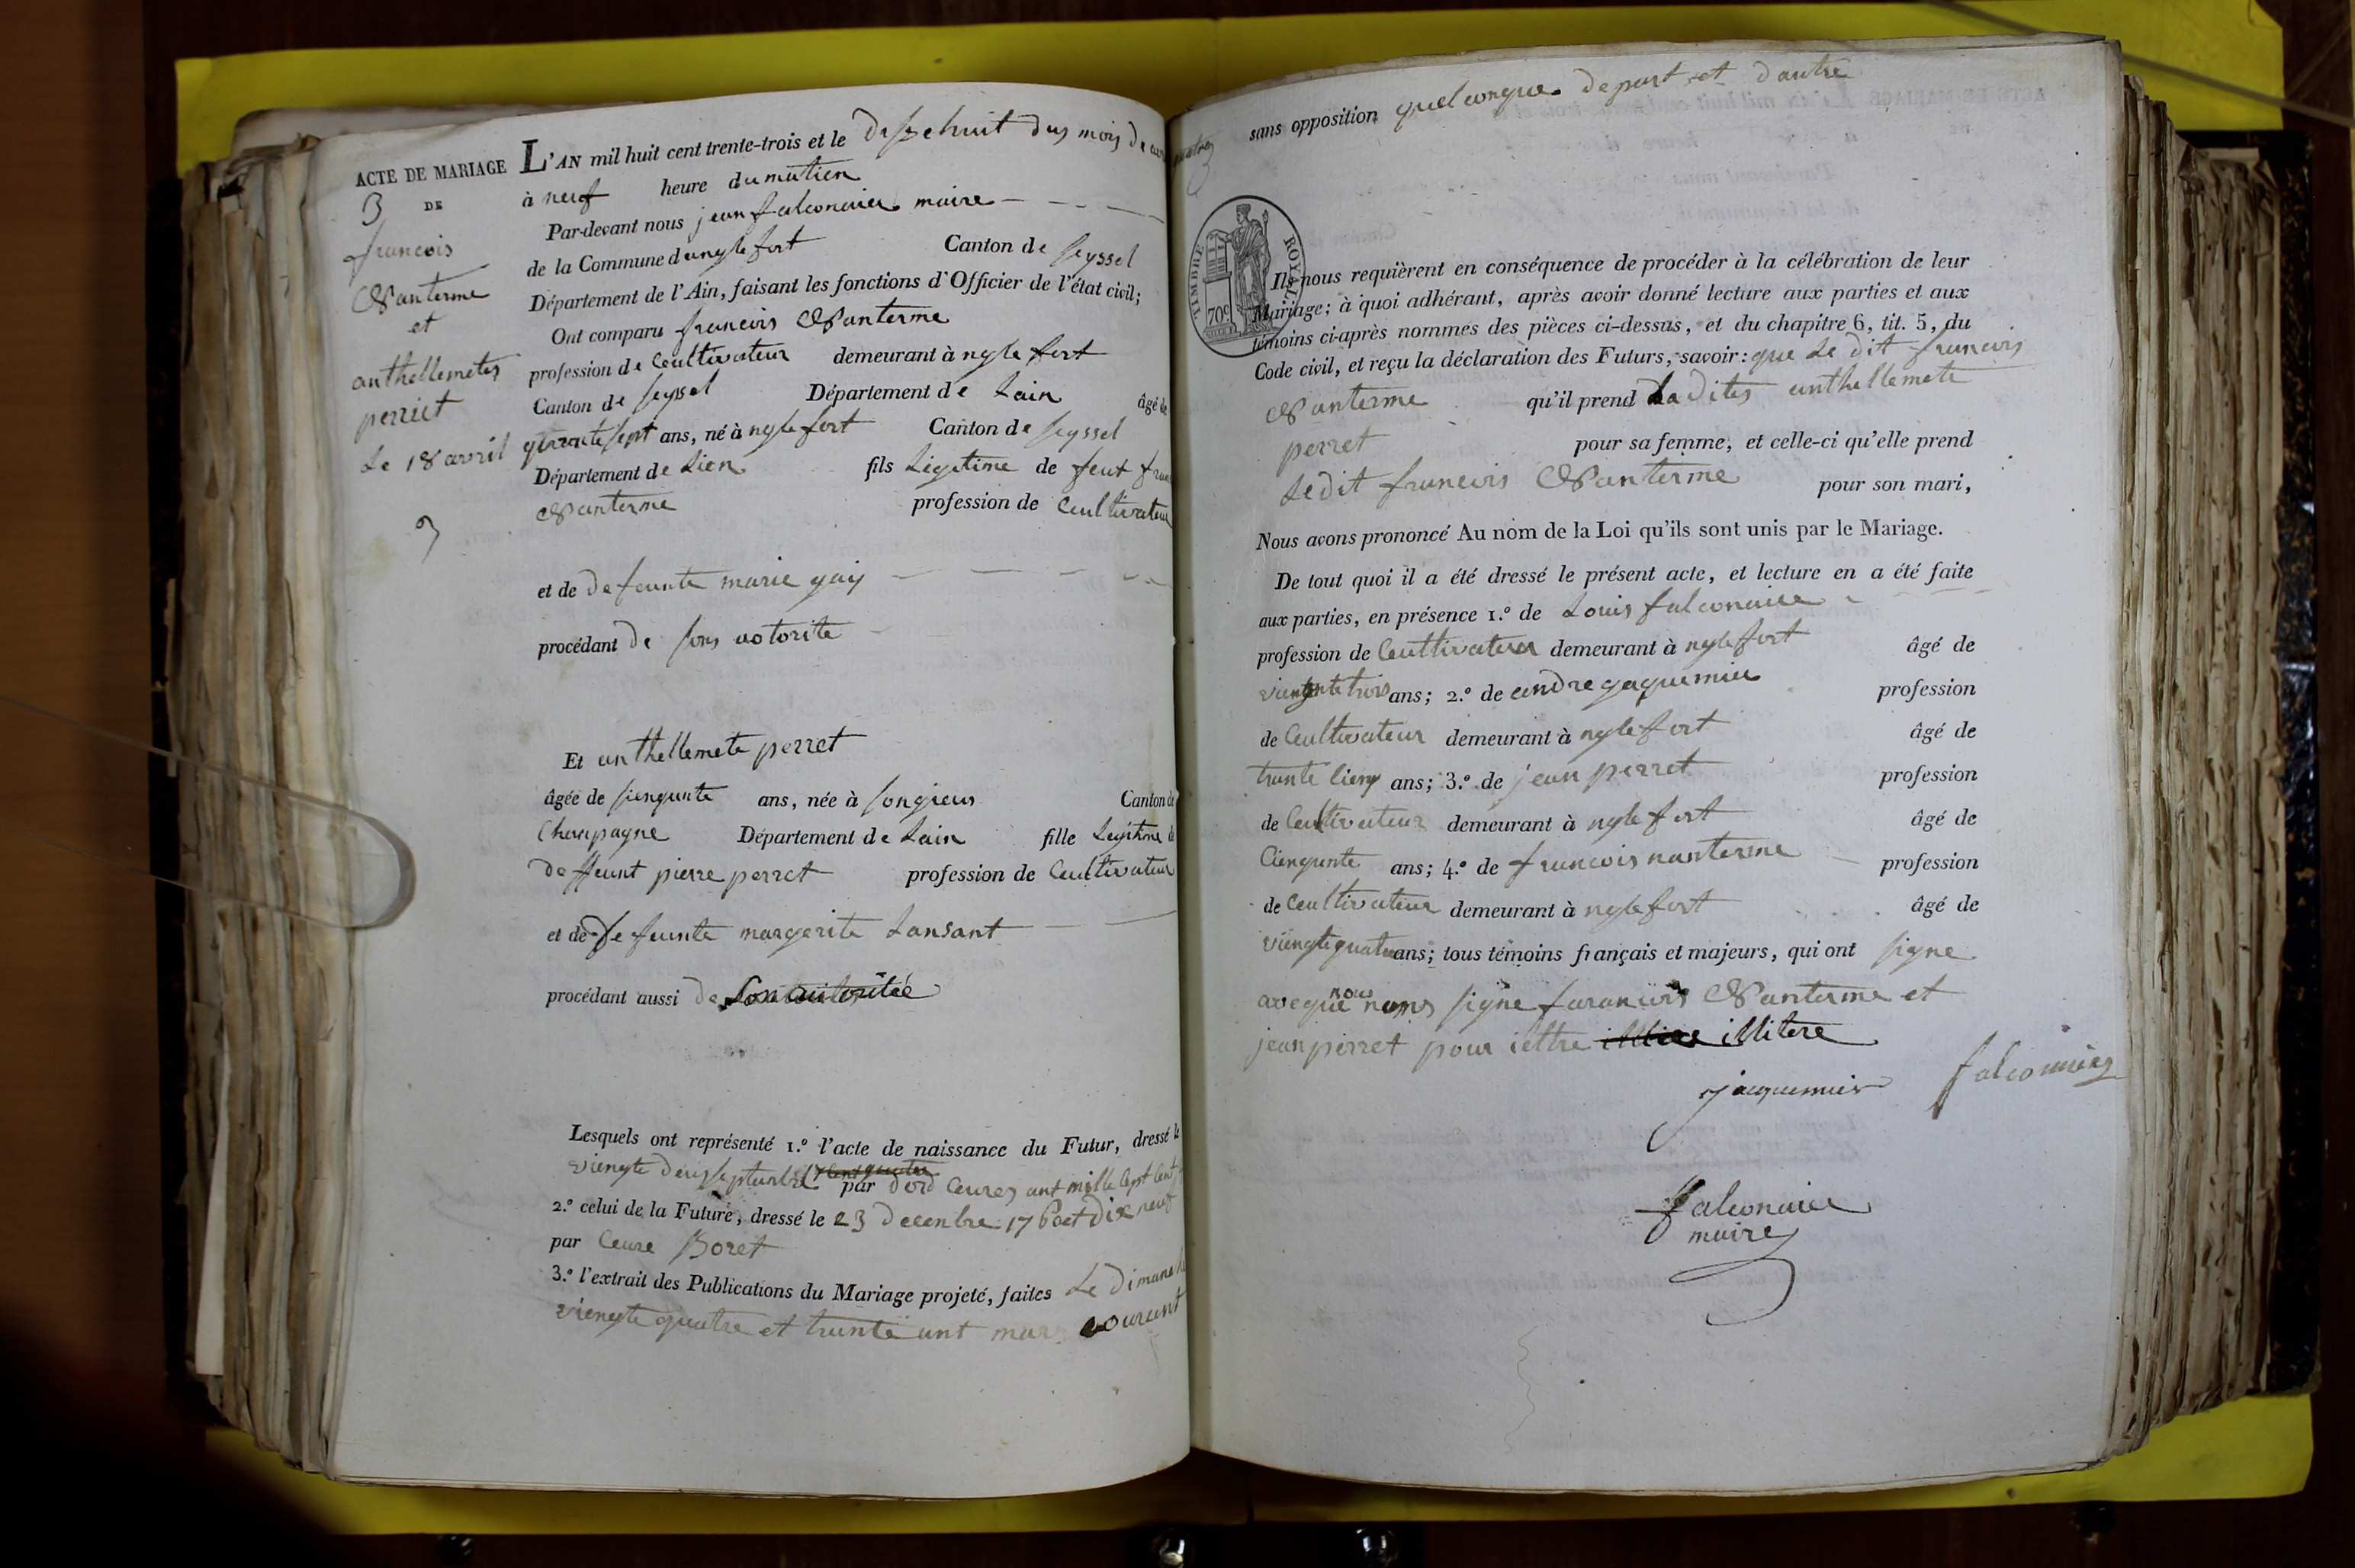 ACTE DE MARIAGE
3 DE
francois
Nanterme
et
anthellemetes
perriet
Le 18 avril
3
L'AN mil huit cent trente-trois et le dissehuit dus mois de
à neuf heure dumatien
Par-devant nous jean falconaier maire
de la Commune danglefort Canton de seyssel
Département de l'Ain, faisant les fonctions d'Officier de l'état civil;
Ont comparu francois Nanterme
profession de Ceultivateur demeurant à nglefort
Canton de seyssel Département de Lain âgé de
qurantesept ans, né à nglefort Canton de seyssel
Département de Lien fils Legitime de feut
Nanterme profession de Ceultivateur
et de defeunte marie gay
procédant de sons votorite
Et anthellemete perret
âgée de sienqunte ans, née à songieus Canton de
Chanpagne Département de Lain fille Legitime de
deffeunt pierre perret profession de Ceultivateur
et de defeunte margerite Lansant
procédant aussi de son autoritée
Lesquels ont représenté 1.º l'acte de naissance du Futur, dressé le
viengte deusseptenbre par Ceures ant mille sept Cent
2.º celui de la Future, dressé le 23 decenbre 17 et dix neuf
par Ceure Boret
3.º l'extrait des Publications du Mariage projeté, faites Le dimanche
viengte quatre et trunte unt mars courunt
sans opposition quelconque depart et dautre
TIMBRE ROYAL
70c
Ils nous requièrent en conséquence de procéder à la célébration de leur
Mariage; à quoi adhérant, après avoir donné lecture aux parties et aux
témoins ci-après nommés des pièces ci-dessus, et du chapitre 6, tit. 5, du
Code civil, et reçu la déclaration des Futurs, savoir: que Le dit francois
Nanterme qu'il prend Ladites anthellemete
perret pour sa femme, et celle-ci qu'elle prend
Ledit francois Nanterme pour son mari,
Nous avons prononcé Au nom de la Loi qu'ils sont unis par le Mariage.
De tout quoi il a été dressé le présent acte, et lecture en a été faite
aux parties, en présence 1.º de Louis falconaier
profession de Ceultivateur demeurant à nglefort âgé de
viengtetrois ans; 2.º de endre gaquemier profession
de Ceultivateur demeurant à nglefort âgé de
trunte Cienq ans; 3.º de jean perret profession
de Ceultivateur demeurant à nglefort âgé de
Cienqunte ans; 4.º de francois nanterme profession
de Ceultivateur demeurant à nglefort âgé de
viengtequatre ans; tous témoins français et majeurs, qui ont signe
aveque nous signe Nanterme et
jean perret pour iettre illitere
jacquemier falconnier
falconaier
maire